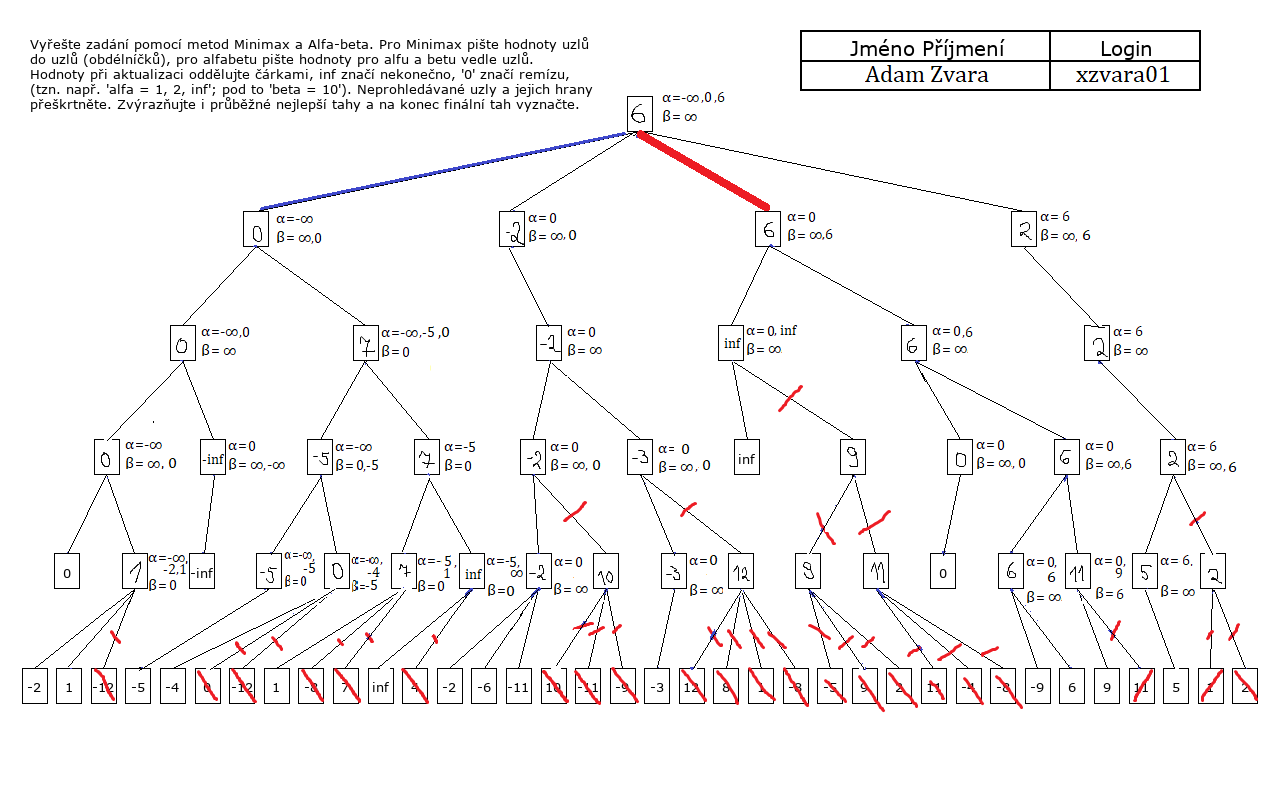 Vyřešte zadání pomocí metod Minimax a Alfa-beta. Pro Minimax pište hodnoty uzlů
do uzlů (obdélníčků), pro alfabetu pište hodnoty pro alfu a betu vedle uzlů.
Hodnoty při aktualizaci oddělujte čárkami, inf značí nekonečno, '0' značí remízu,
(tzn. např. 'alfa = 1, 2, inf'; pod to 'beta = 10'). Neprohledávané uzly a jejich hrany
přeškrtněte. Zvýrazňujte i průběžné nejlepší tahy a na konec finální tah vyznačte.
Jméno Příjmení Login
Adam Zvara xzvara01
6 α=-∞,0,6
β= ∞
0 α=-∞ -2 α= 0 6 α= 0 2 α= 6
β= ∞,0 β= ∞, 0 β= ∞,6 β= ∞, 6
0 α=-∞,0 7 α=-∞,-5 ,0 -2 α= 0 inf α= 0, inf 6 α= 0,6 2 α= 6
β= ∞ β= 0 β= ∞ β= ∞ β= ∞ β= ∞
0 α=-∞ -inf α= 0 -5 α=-∞ 7 α=-5 -2 α= 0 -3 α= 0 inf 9 0 α= 0 6 α= 0 2 α= 6
β= ∞, 0 β= ∞,-∞ β= 0,-5 β= 0 β= ∞, 0 β= ∞, 0 β= ∞, 0 β= ∞,6 β= ∞, 6
0 1 α=-∞, -2,1 -inf -5 α=-∞, -5 0 α=-∞, -4 7 α=-5, 1 inf α=-5, ∞ -2 α= 0 10 -3 α= 0 12 9 11 0 6 α= 0, 6 11 α= 0, 9 5 α= 6, 2
β= 0 β= 0 β=-5 β= 0 β= 0 β= ∞ β= ∞ β= ∞ β= 6 β= ∞
-2 1 -12 -5 -4 0 -12 1 -8 7 inf 4 -2 -6 -11 10 -11 -9 -3 12 8 1 -8 -5 9 2 11 -4 -8 -9 6 9 11 5 1 2